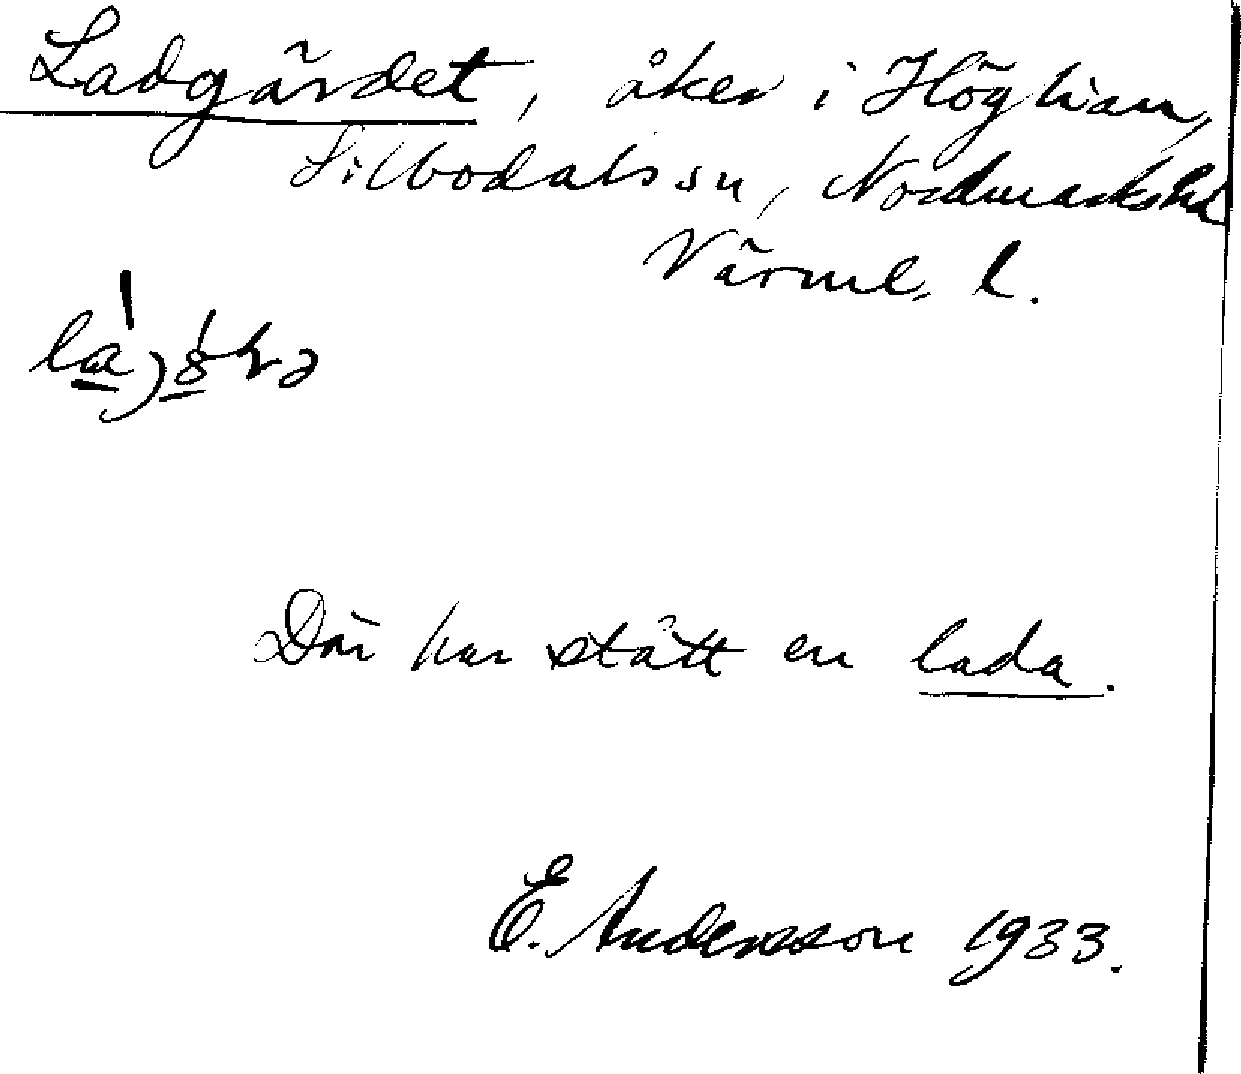 Ladgärdet, åker i Höglian,
Silbodals sn, Nordmarks hd
Värml. l.
Där har stått en lada.
E. Andersson 1933.